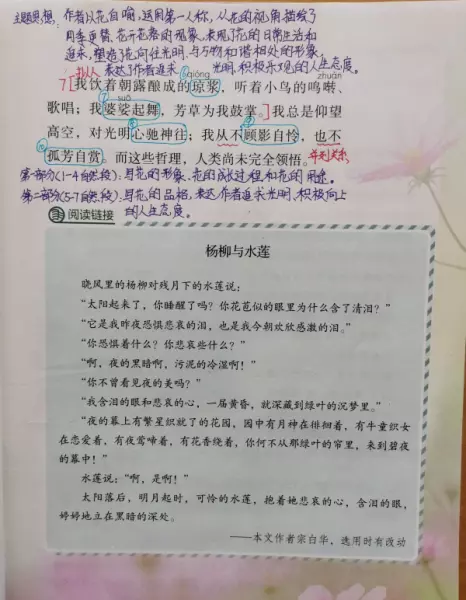 主题思想：作者以花自喻，运用第一人称，从花的视角描绘了
四季更替、花开花落的现象，表现了花的日常生活和
追求，塑造了花向往光明，与万物和谐相处的形象，
拟人 表达了作者追求光明，积极乐观的人生态度。
qióng zhuàn
7 我饮着朝露酿成的琼浆，听着小鸟的鸣啭、
suō
歌唱；我婆娑起舞，芳草为我鼓掌。我总是仰望
高空，对光明心驰神往；我从不顾影自怜，也不
孤芳自赏。而这些哲理，人类尚未完全领悟。并列关系
第一部分(1-4自然段)：写花的形象、花的成长过程和花的用途。
第二部分(5-7自然段)：写花的品格，表达作者追求光明，积极向上
的人生态度。
阅读链接
杨柳与水莲
晓风里的杨柳对残月下的水莲说：
“太阳起来了，你睡醒了吗？你花苞似的眼里为什么含了清泪？”
“它是我昨夜恐惧悲哀的泪，也是我今朝欢欣感激的泪。”
“你恐惧着什么？你悲哀些什么？”
“啊，夜的黑暗啊，污泥的冷湿啊！”
“你不曾看见夜的美吗？”
“我含泪的眼和悲哀的心，一届黄昏，就深藏到绿叶的沉梦里。”
“夜的幕上有繁星织就了的花园，园中有月神在徘徊着，有牛童织女
在恋爱着，有夜莺啼着，有花香绕着，你何不从那绿叶的帘里，来到碧夜
的幕中！”
水莲说：“啊，是啊！”
太阳落后，明月起时，可怜的水莲，抱着她悲哀的心，含泪的眼，
婷婷地立在黑暗的深处。
——本文作者宗白华，选用时有改动